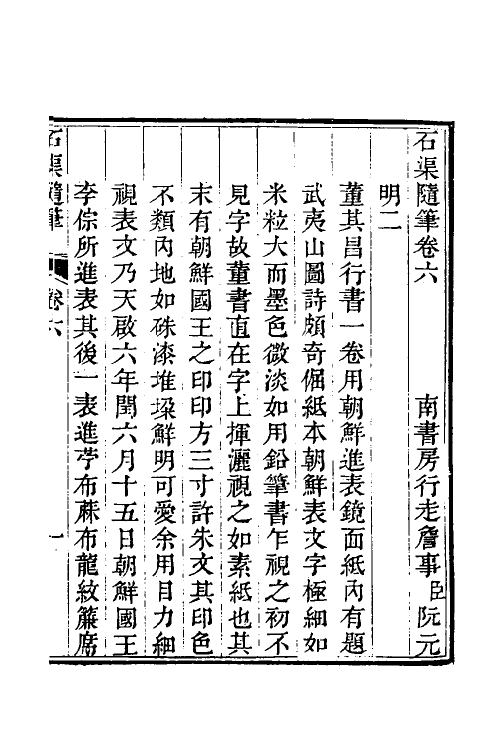 石渠隨筆卷六
南書房行走詹事臣阮元
明二
董其昌行書一卷用朝鮮進表鏡面紙內有題
武夷山圖詩頗奇倔紙本朝鮮表文字極細如
米粒大而墨色微淡如用鉛筆書乍視之初不
見字故董書直在字上揮灑視之如素紙也其
末有朝鮮國王之印印方三寸許朱文其印色
不類內地如硃漆堆垜鮮明可愛余用目力細
視表文乃天啟六年閏六月十五日朝鮮國王
李倧所進表其後一表進苧布蔴布龍紋簾席
石渠隨筆 卷六 一